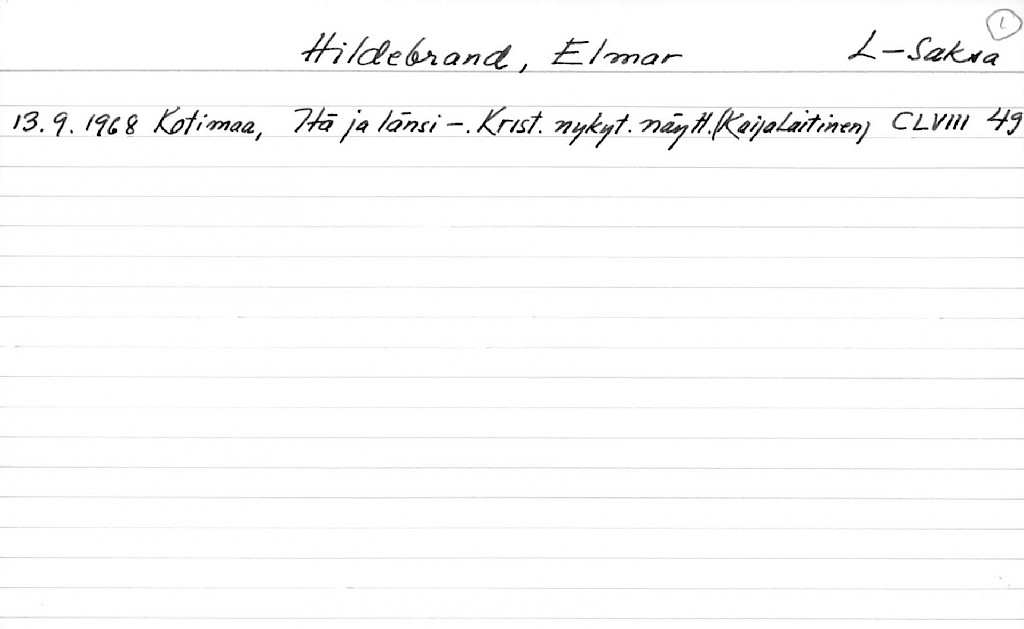 1
Hildebrand, Elmar L-Saksa
13.9.1968 Kotimaa, Itä ja länsi -. Krist. nykyt. näytt. (Kaija Laitinen) CLVIII 49